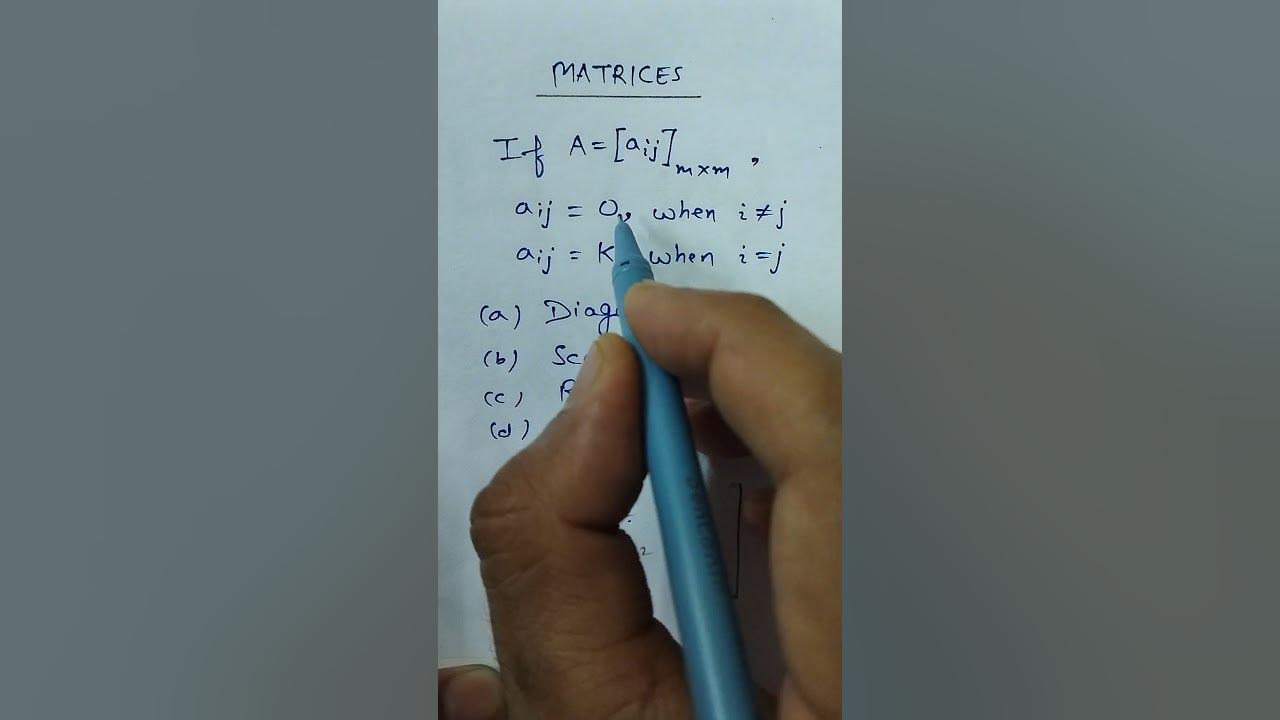 MATRICES
If A = [aij]m×m ,
aij = 0, when i ≠ j
aij = K when i = j
(a)
(b)
(c)
(d)